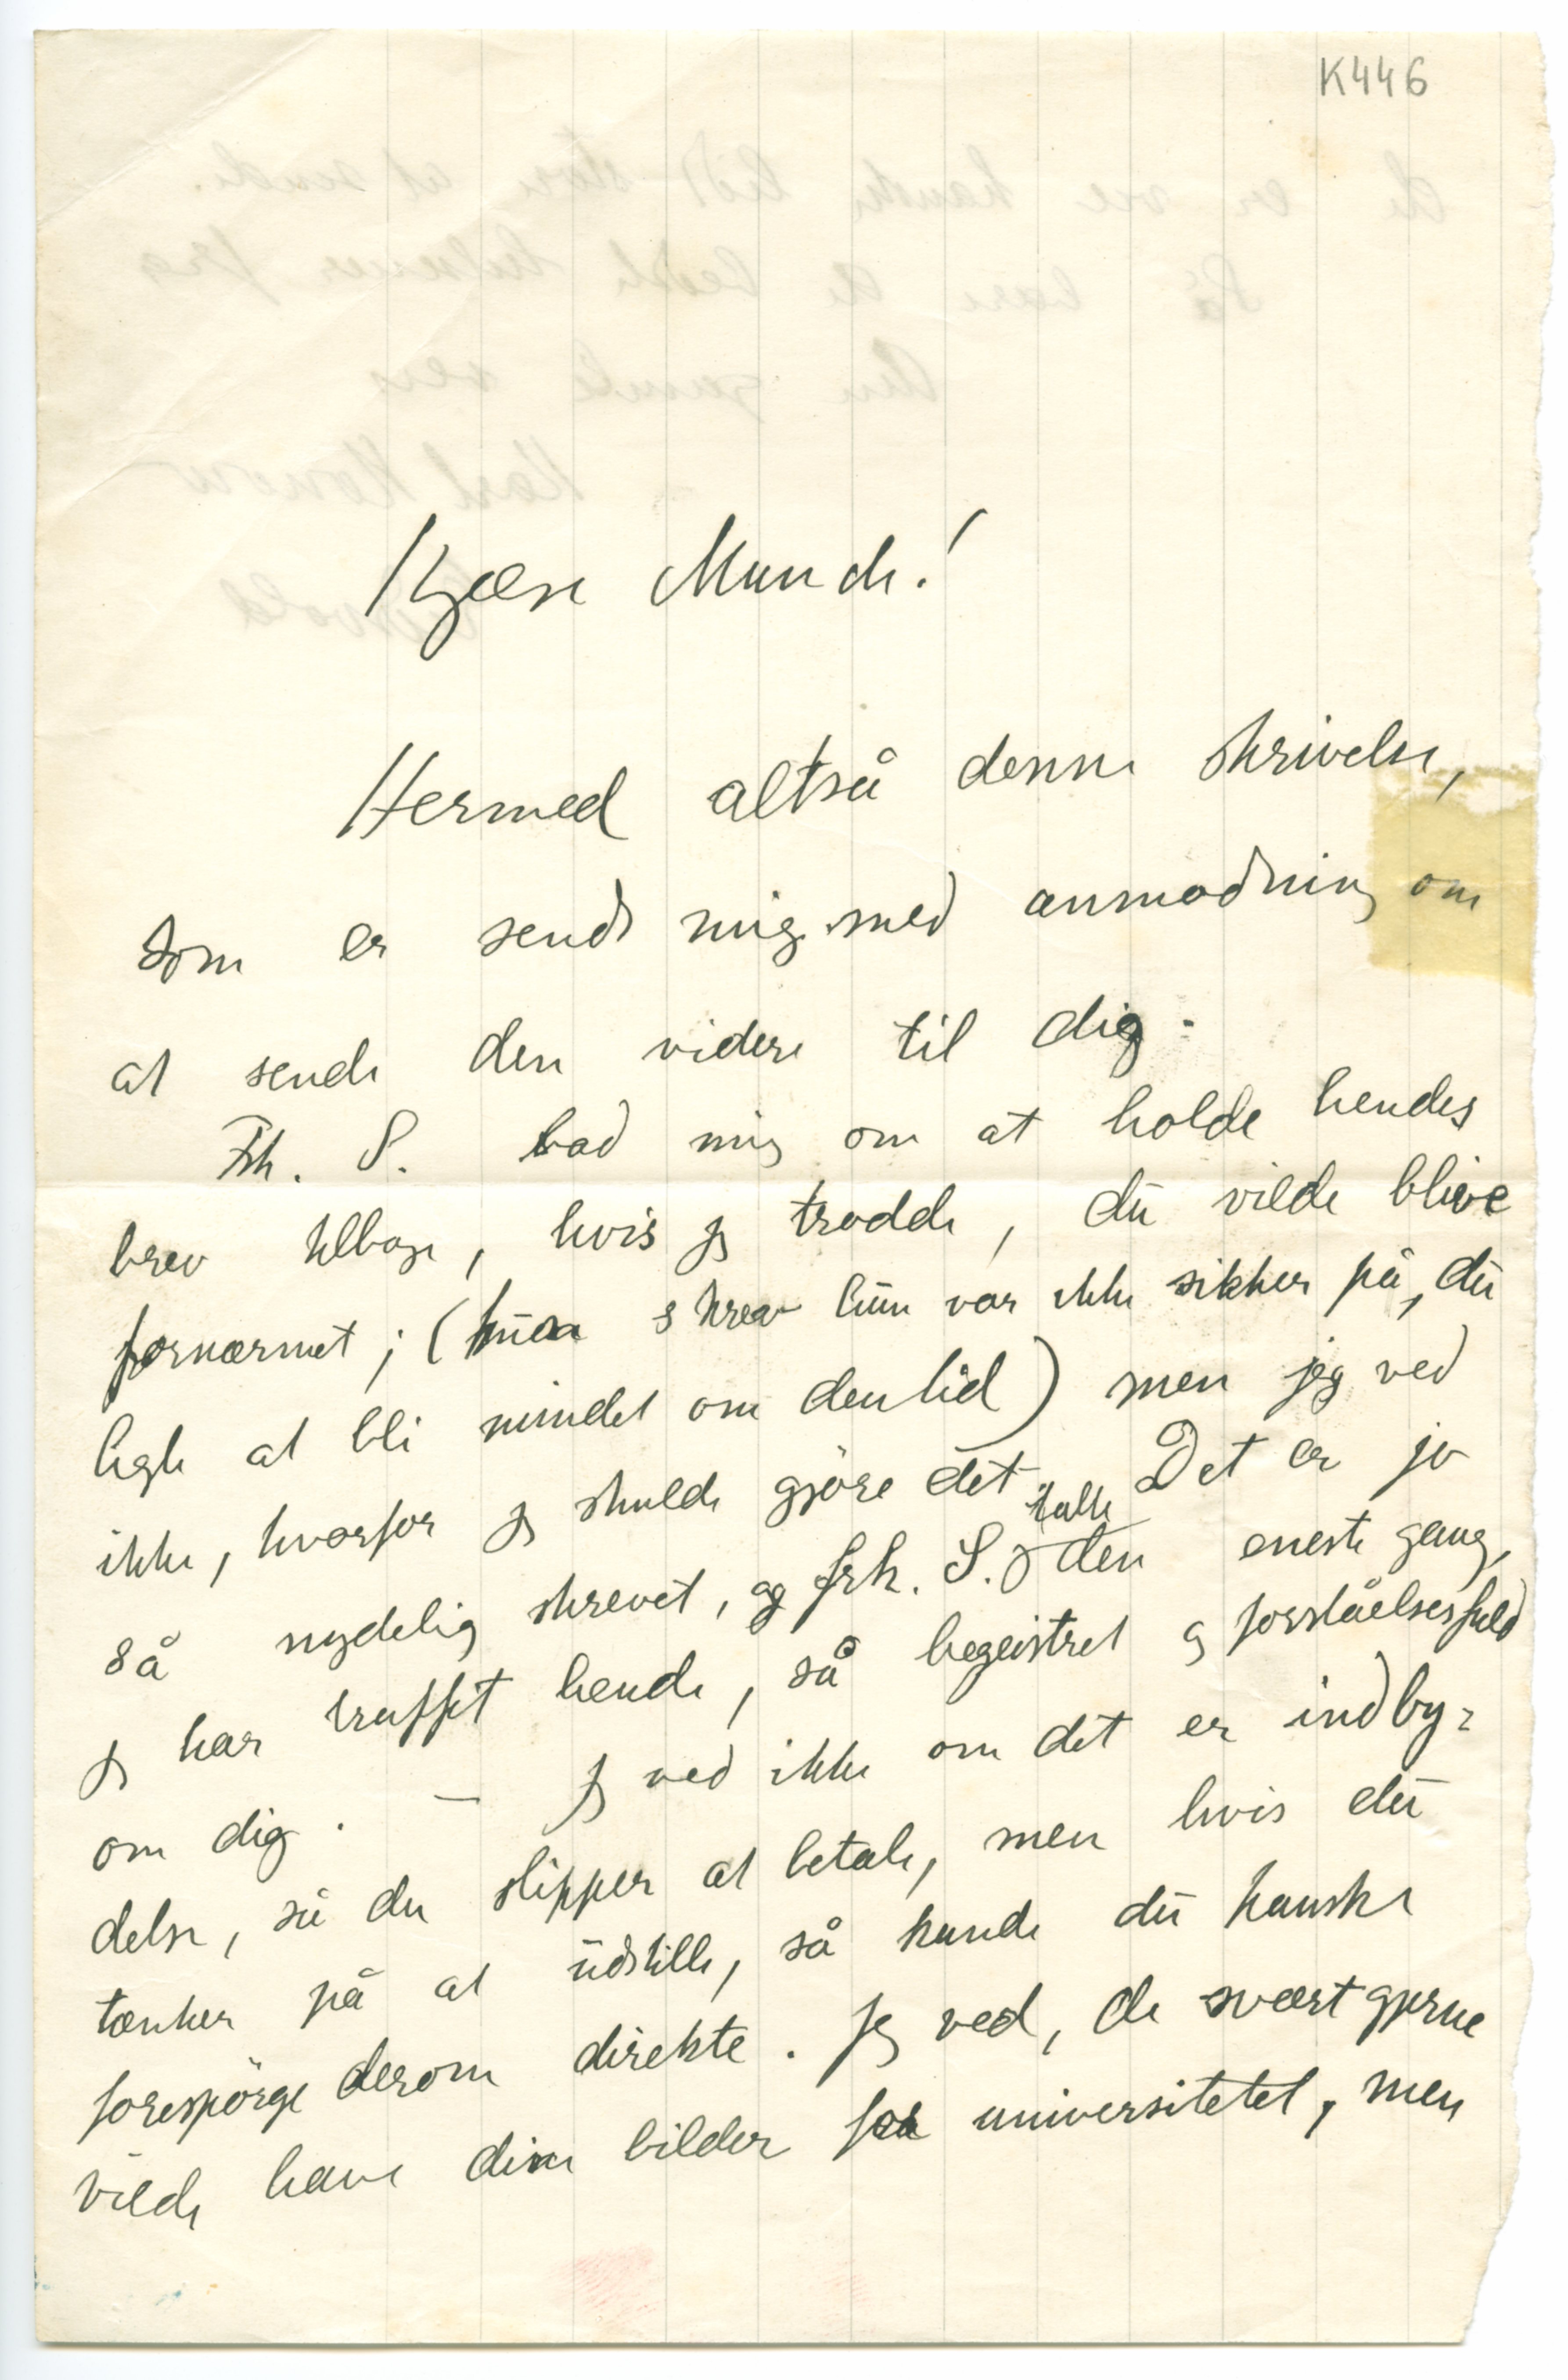 K446
Kjære Munch!
Hermed altså denne skrivelse,
som er sendt mig med anmodning om
at sende den videre til dig.
Frk. S. bad mig om at holde hendes
brev tilbage, hvis jeg trodde, du vilde blive
fornærmet; (hun skrev hun var ikke sikker på, du
ligte at bli mindet om den tid) men jeg ved
ikke, hvorfor jeg skulde gjöre det. Det er jo
så nydelig skrevet, og frk. S. talte den eneste gang,
jeg har truffet hende, så begeistret og forståelsesfuld
om dig. — Jeg ved ikke om det er indby=
delse, så du slipper at betale, men hvis du
tænker på at udstille, så kunde du kanske
forespörge derom direkte. Jeg ved, de svært gjerne
vilde have dine bilder fra universitetet, men